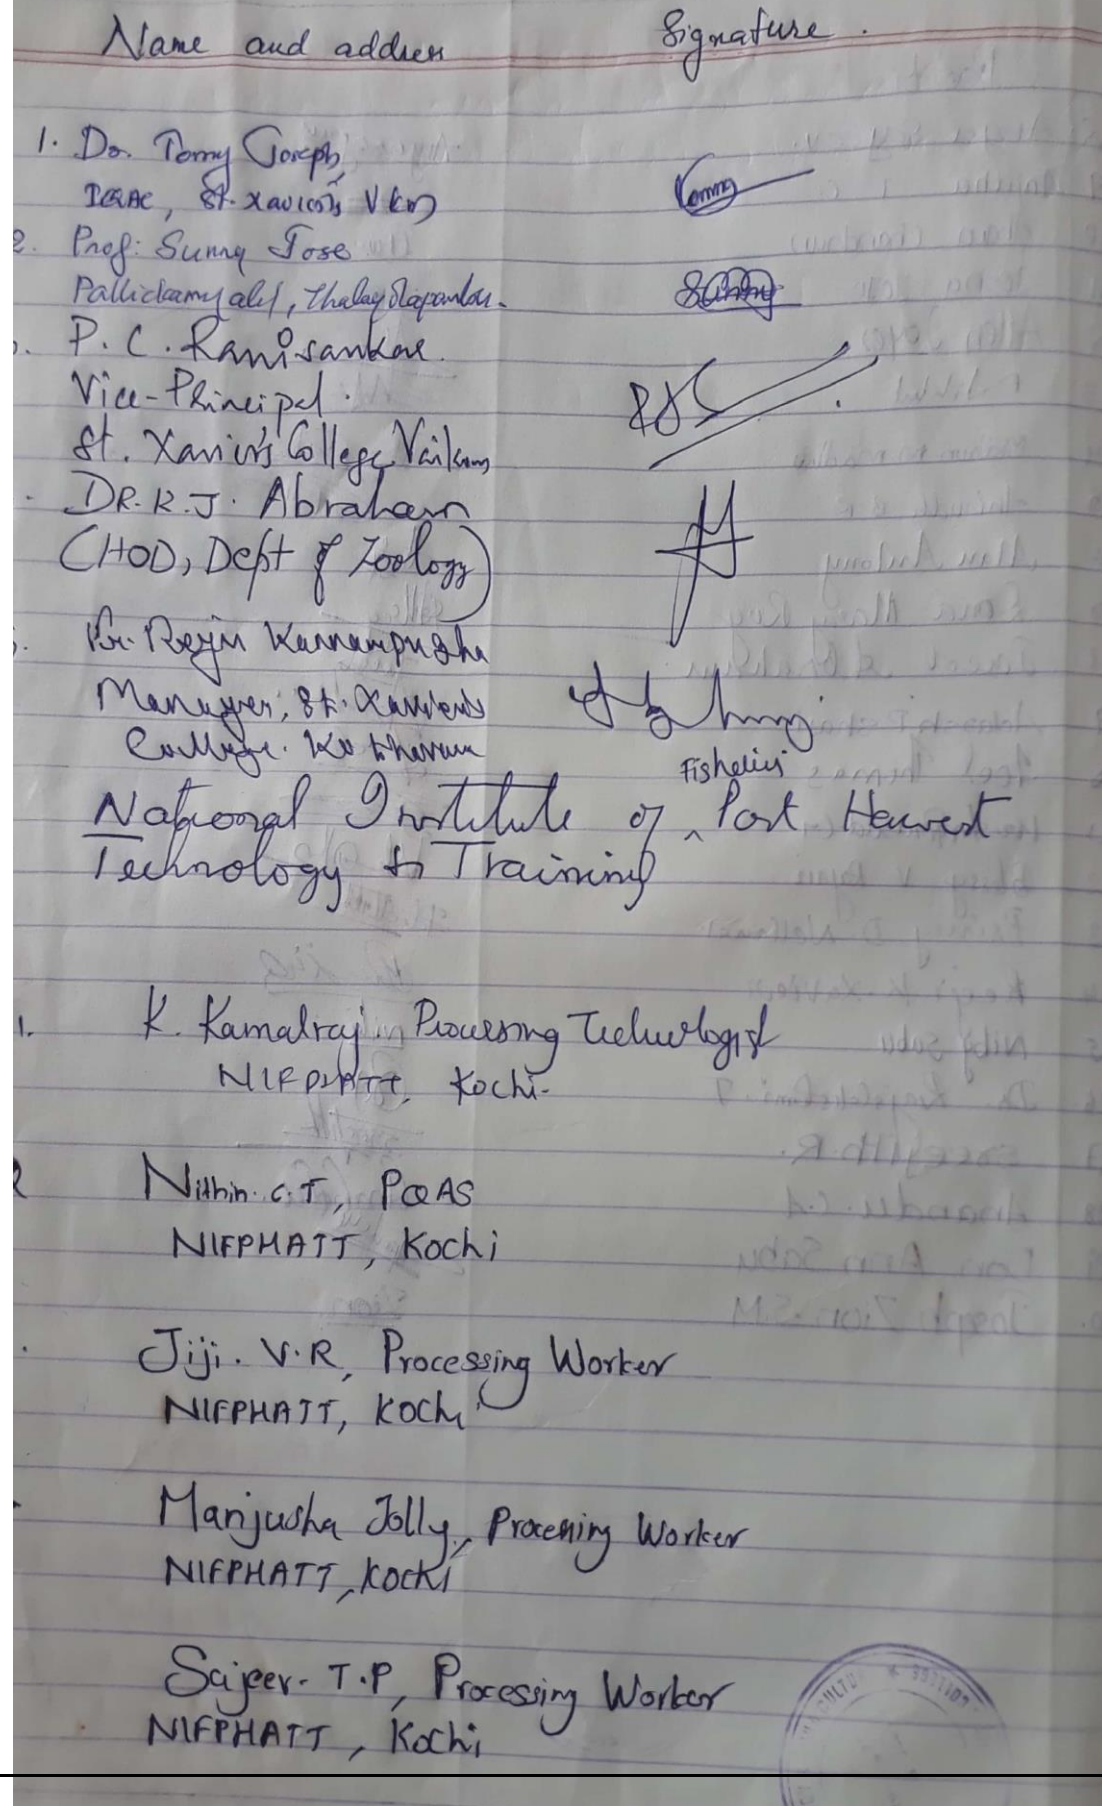 Name and address Signature.
1. Dr. Tomy Joseph,
IQAC, St. Xavier's Vkm Tomy
2. Prof: Sunny Jose
Sunny
P. C. Ranisankar.
Vice-Principal.
St. Xavier's College, Vaikom
DR. K. J. Abraham
(HOD, Dept of Zoology)
Fr. Rejin Kannampuzha
Manager, St. Xavier's
College.
Fisheries
National Institute of ^ Post Harvest
Technology & Training
1. K. Kamalraj Processing Technologist
NIFPHATT, Kochi.
2 Nithin. C.T, PQAS
NIFPHATT, Kochi
Jiji. V.R, Processing Worker
NIFPHATT, Kochi
Manjusha Jolly, Processing Worker
NIFPHATT, Kochi
Sajeev. T.P, Processing Worker
NIFPHATT, Kochi